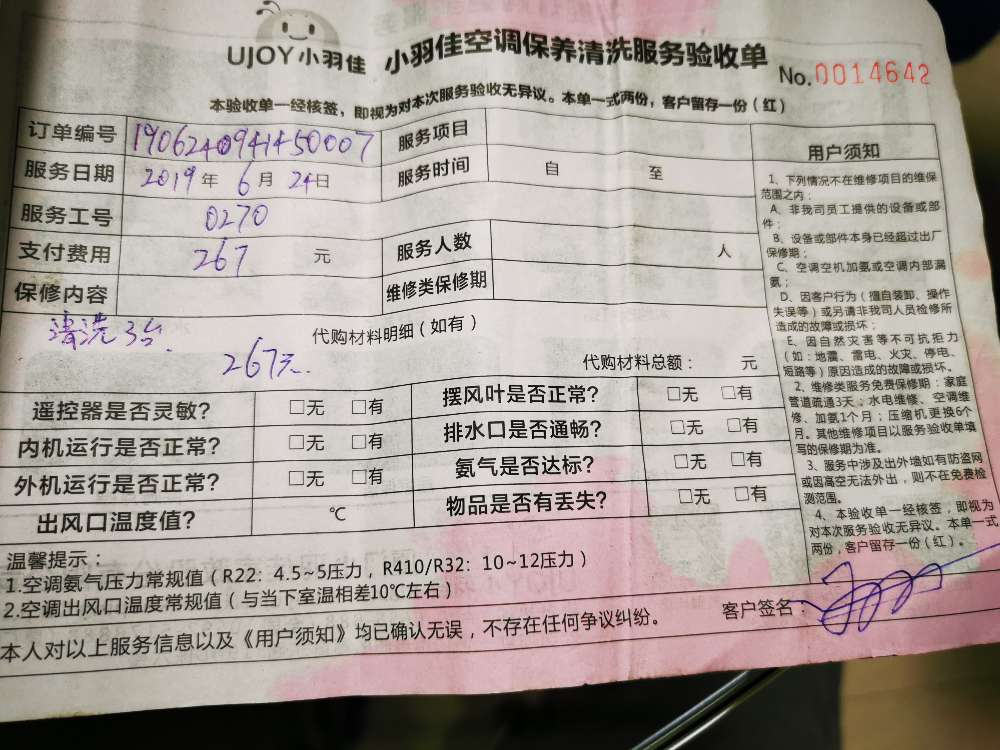 UJOY小羽佳 小羽佳空调保养清洗服务验收单
No.0014642
本验收单一经核签，即视为对本次服务验收无异议。本单一式两份，客户留存一份（红）
订单编号 190624094145​0007 服务项目
服务日期 2019年 6月 24日 服务时间 自 至
服务工号 0270
支付费用 267 元 服务人数 人
保修内容 维修类保修期
清洗3台 代购材料明细（如有）
267元. 代购材料总额： 元
遥控器是否灵敏? □无 □有 摆风叶是否正常? □无 □有
内机运行是否正常? □无 □有 排水口是否通畅? □无 □有
外机运行是否正常? □无 □有 氨气是否达标? □无 □有
出风口温度值? ℃ 物品是否有丢失? □无 □有
用户须知
1、下列情况不在维修项目的维保
范围之内：
A、非我司员工提供的设备或部
件；
B、设备或部件本身已经超过出厂
保修期；
C、空调空机加氨或空调内部漏
氨；
D、因客户行为（擅自装卸、操作
失误等）或另请非我司人员检修所
造成的故障或损坏；
E、因自然灾害等不可抗拒力
（如：地震、雷电、火灾、停电、
短路等）原因造成的故障或损坏。
2、维修类服务免费保修期：家庭
管道疏通3天；水电维修、空调维
修、加氨1个月；压缩机更换6个
月。其他维修项目以服务验收单填
写的保修期为准。
3、服务中涉及出外墙如有防盗网
或因高空无法外出，则不在免费检
测范围。
4、本验收单一经核签，即视为
对本次服务验收无异议。本单一式
两份，客户留存一份（红）。
温馨提示：
1.空调氨气压力常规值（R22：4.5~5压力，R410/R32：10~12压力）
2.空调出风口温度常规值（与当下室温相差10℃左右）
本人对以上服务信息以及《用户须知》均已确认无误，不存在任何争议纠纷。 客户签名：